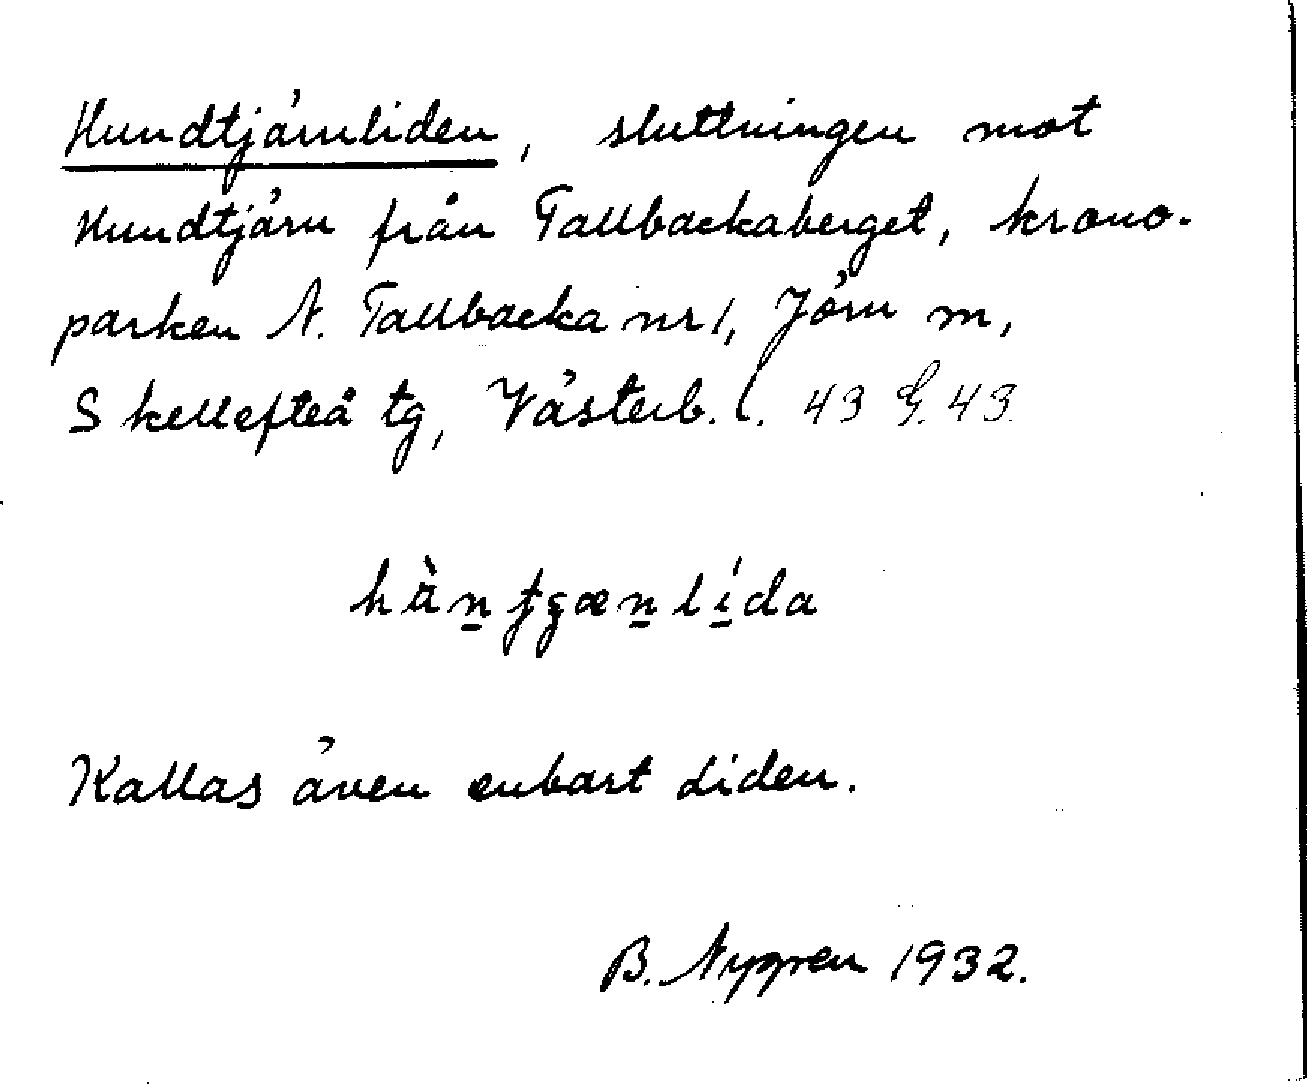 Hundtjärnliden, sluttningen mot
Hundtjärn från Tallbackaberget, krono-
parken N. Tallbacka nr 1, Jörn m,
Skellefteå tg, Västerb. l. 43 G. 43.
Kallas även enbart Liden.
B. Nygren 1932.